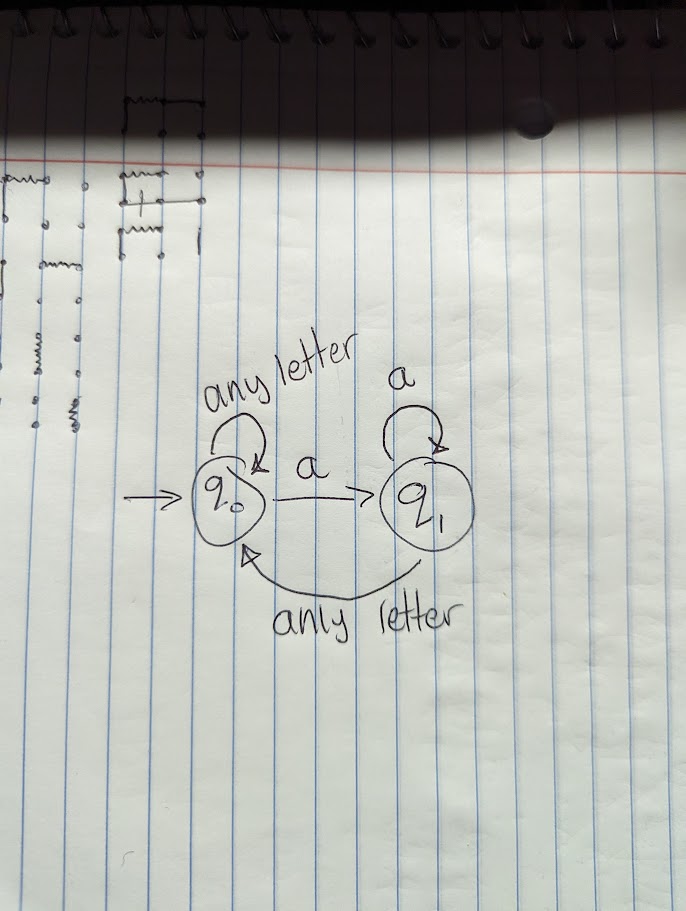 any letter
a
q₀
a
q₁
anly letter